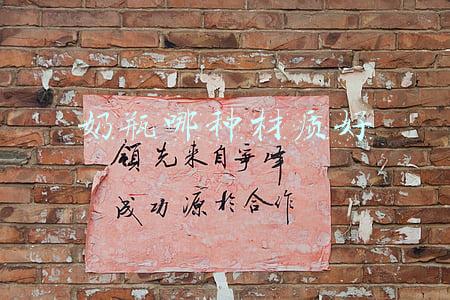 奶瓶哪种材质好
领先来自争峰
成功源於合作